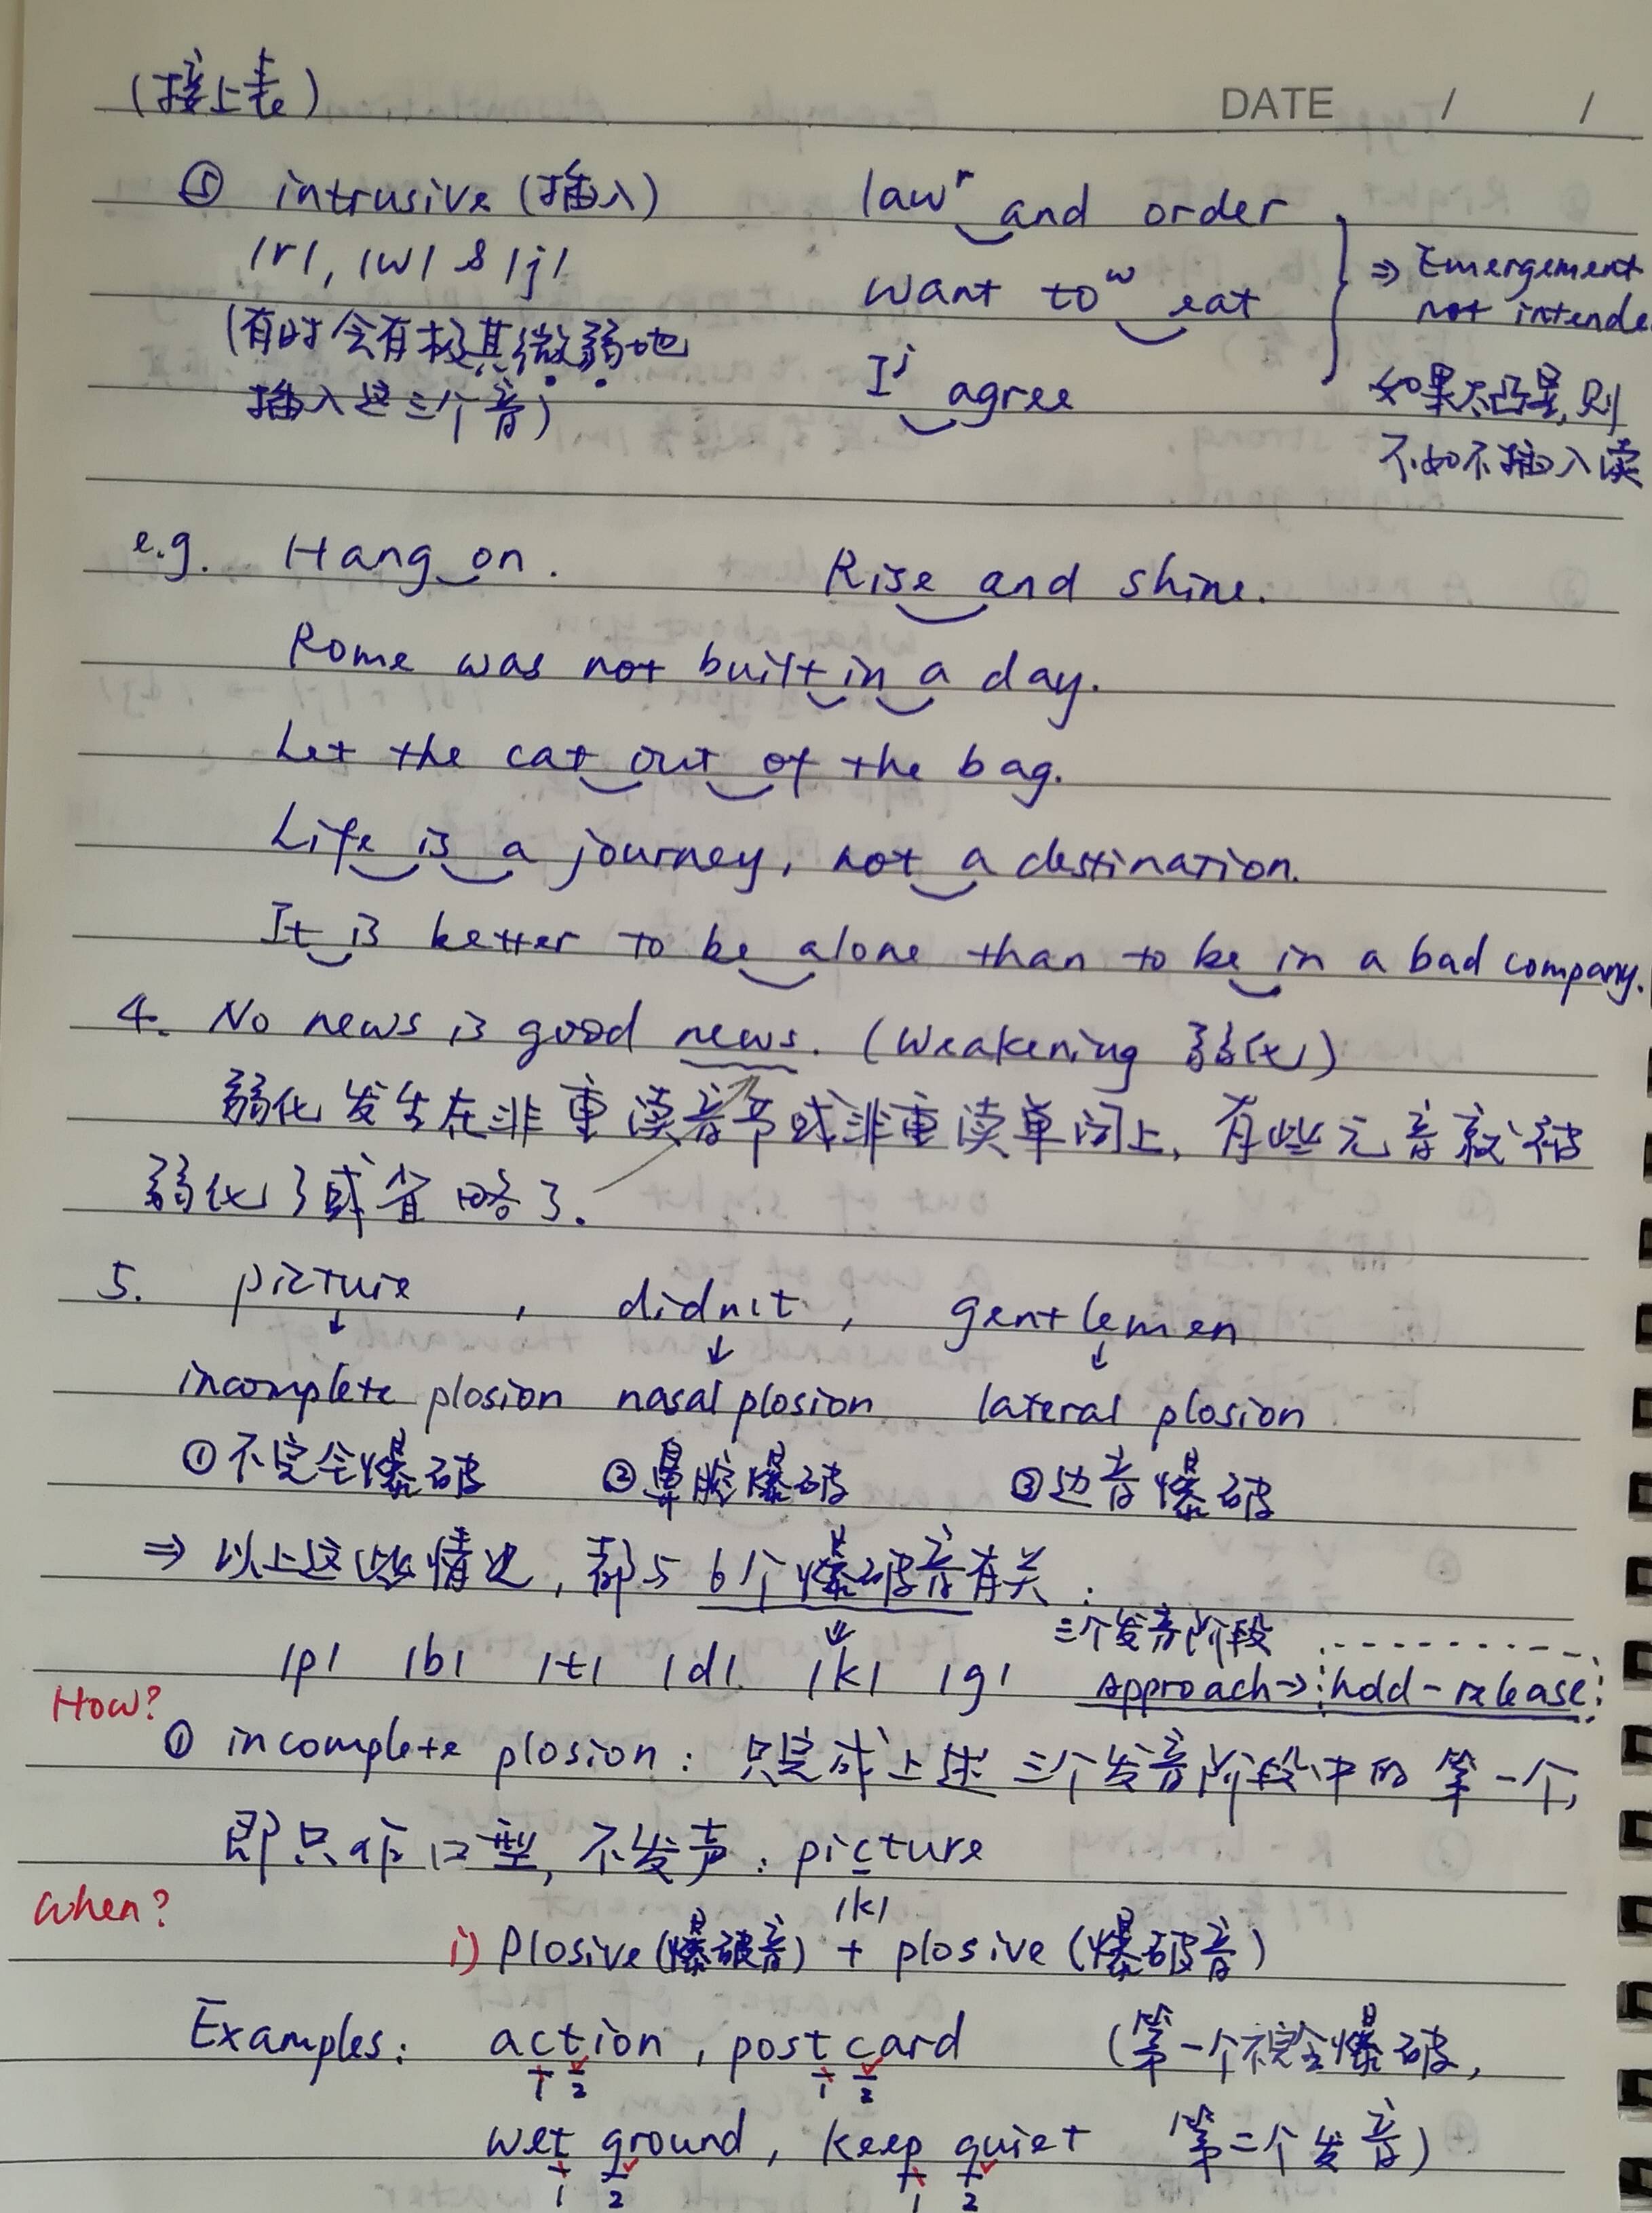 (接上表)
DATE / /
⑤ intrusive (插入) lawʳ and order
/r/, /w/ & /j/ ⇒ Emergement
want toʷ eat not intende
(有时会有极其微弱地
Iʲ agree 如果太凸显,则
插入这三个音)
不如不插入读
e.g. Hang on. Rise and shine.
Rome was not built in a day.
Let the cat out of the bag.
Life is a journey, not a destination.
It is better to be alone than to be in a bad company.
4. No news is good news. (Weakening 弱化)
弱化发生在非重读音节或非重读单词上, 有些元音就被
弱化了或省略了.
5. picture, didn't, gentlemen
↓ ↓ ↓
incomplete plosion nasal plosion lateral plosion
①不完全爆破 ②鼻腔爆破 ③边音爆破
⇒ 以上这些情况, 都与6个爆破音有关:
三个发音阶段
/p/ /b/ /t/ /d/ /k/ /g/ Approach→hold-release
How?
① incomplete plosion: 只完成上述三个发音阶段中的第一个,
即只作口型, 不发声: picture
When? /k/
i) Plosive (爆破音) + plosive (爆破音)
Examples: action, postcard (第一个不完全爆破,
1 2 1 2
wet ground, keep quiet 第二个发音)
1 2 1 2